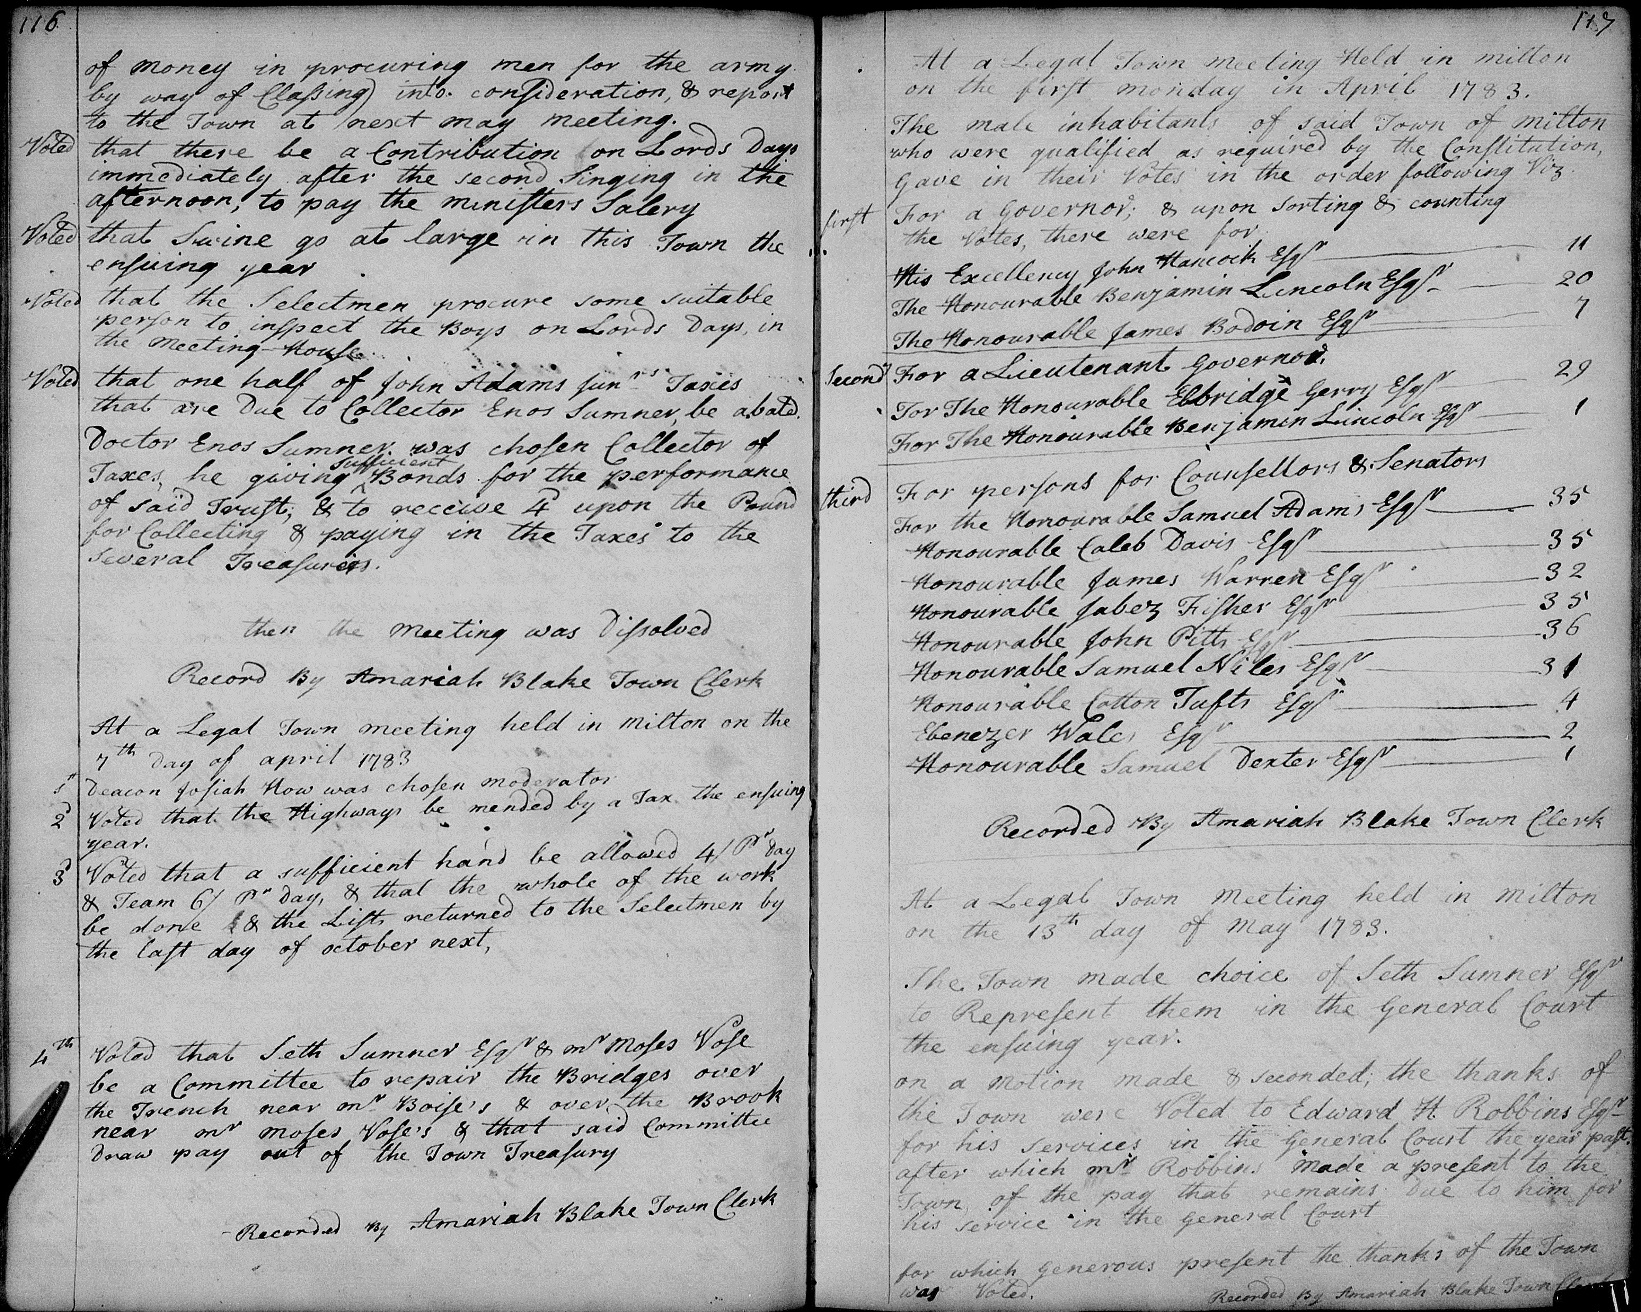 116
of money in procuring men for the army
by way of Classing into consideration, & report
to the Town at next may meeting.
Voted that there be a Contribution on Lords Days
immediately after the second Singing in the
afternoon, to pay the ministers Salery
Voted that Swine go at large in this Town the
ensuing year
Voted that the Selectmen procure some suitable
person to inspect the Boys on Lords Days, in
the Meeting House
Voted that one half of John Adams junrs Taxes
that are Due to Collector Enos Sumner, be abated.
Doctor Enos Sumner was chosen Collector of
Taxes, he giving sufficient Bonds for the performance
of said Trust, & to receive 4d upon the Pound
for Collecting & paying in the Taxes to the
several Treasurers.
then the meeting was Dissolved
Record By Amariah Blake Town Clerk
At a Legal Town meeting held in milton on the
7th Day of april 1783
1 Deacon Josiah How was chosen moderator
2 Voted that the Highways be mended by a Tax the ensuing
year.
3 Voted that a sufficient hand be allowed 4/ Pr Day
& Team 6/ Pr Day, & that the whole of the work
be done & the Lists returned to the Selectmen by
the last day of october next,
4th Voted that Seth Sumner Esqr & mr Moses Vose
be a Committee to repair the Bridges over
the Trench near mr Boise's & over the Brook
near mr Moses Vose's & that said Committee
Draw pay out of the Town Treasury
Recorded By Amariah Blake Town Clerk
117
At a Legal Town meeting Held in milton
on the first monday in April 1783.
The male inhabitants of said Town of milton
who were qualified as required by the Constitution,
Gave in their Votes in the order following Viz.
first For a Governor; & upon sorting & counting
the Votes, there were for
His Excellency John Hancock Esqr 11
The Honourable Benjamin Lincoln Esqr 20
The Honourable James Bodoin Esqr 7
Second For a Lieutenant Governor.
For The Honourable Elbridge Gerry Esqr 29
For The Honourable Benjamin Lincoln Esqr 1
third For persons for Counsellors & Senators
For the Honourable Samuel Adams Esqr 35
Honourable Caleb Davis Esqr 35
Honourable James Warren Esqr 32
Honourable Jabez Fisher Esqr 35
Honourable John Pitts Esqr 36
Honourable Samuel Niles Esqr 31
Honourable Cotton Tufts Esqr 4
Ebenezer Wales Esqr 2
Honourable Samuel Dexter Esqr 1
Recorded By Amariah Blake Town Clerk
At a Legal Town Meeting held in milton
on the 13th day of may 1783.
The Town made choice of Seth Sumner Esqr
to Represent them in the General Court
the ensuing year.
on a motion made & seconded; the thanks of
the Town were Voted to Edward H Robbins Esqr
for his services in the General Court the year past.
after which mr Robbins made a present to the
Town of the pay that remains Due to him for
his service in the General Court
for which generous present the thanks of the Town
was Voted.
Recorded By Amariah Blake Town Clerk